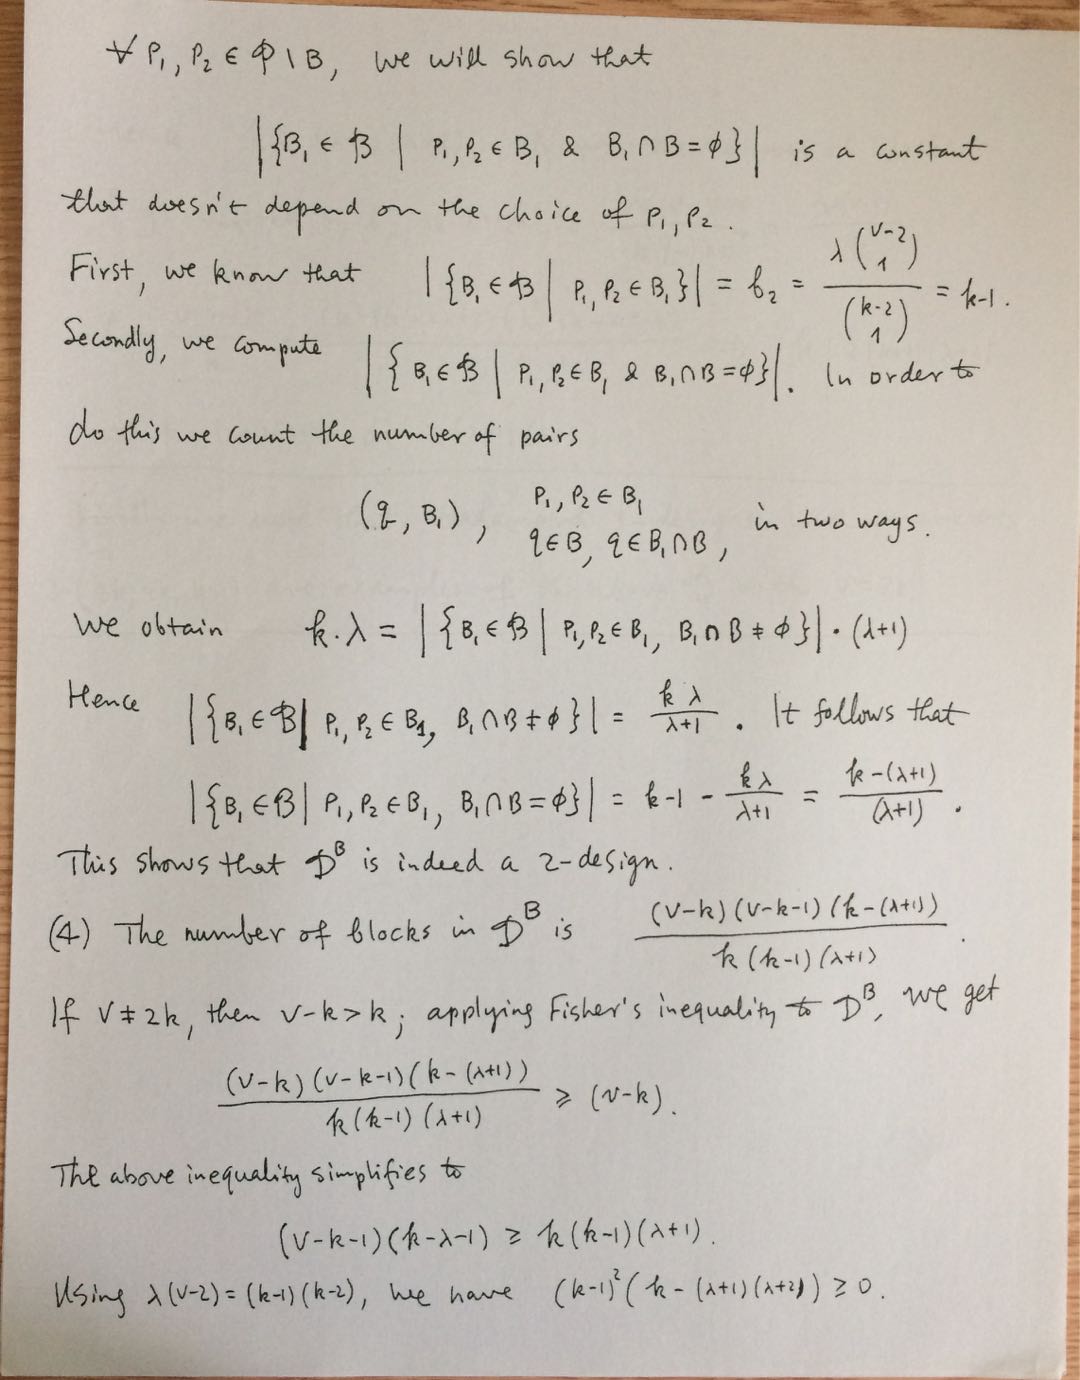 ∀ P₁, P₂ ∈ 𝒫 \ B, we will show that
|{B₁ ∈ ℬ | P₁, P₂ ∈ B₁ & B₁ ∩ B = ϕ}| is a constant
that doesn't depend on the choice of P₁, P₂.
First, we know that |{B₁ ∈ ℬ | P₁, P₂ ∈ B₁}| = b₂ = λ(v-2 1) / (k-2 1) = k-1.
Secondly, we compute |{B₁ ∈ ℬ | P₁, P₂ ∈ B₁ & B₁ ∩ B = ϕ}|. In order to
do this we count the number of pairs
(q, B₁), P₁, P₂ ∈ B₁
q ∈ B, q ∈ B₁ ∩ B, in two ways.
We obtain k·λ = |{B₁ ∈ ℬ | P₁, P₂ ∈ B₁, B₁ ∩ B ≠ ϕ}| · (λ+1)
Hence |{B₁ ∈ ℬ | P₁, P₂ ∈ B₁, B₁ ∩ B ≠ ϕ}| = kλ / λ+1. It follows that
|{B₁ ∈ ℬ | P₁, P₂ ∈ B₁, B₁ ∩ B = ϕ}| = k-1 - kλ / λ+1 = k-(λ+1) / (λ+1).
This shows that 𝒟ᴮ is indeed a 2-design.
(4) The number of blocks in 𝒟ᴮ is (v-k)(v-k-1)(k-(λ+1)) / k(k-1)(λ+1).
If v ≠ 2k, then v-k > k; applying Fisher's inequality to 𝒟ᴮ, we get
(v-k)(v-k-1)(k-(λ+1)) / k(k-1)(λ+1) ≥ (v-k).
The above inequality simplifies to
(v-k-1)(k-λ-1) ≥ k(k-1)(λ+1).
Using λ(v-2) = (k-1)(k-2), we have (k-1)²(k-(λ+1)(λ+2)) ≥ 0.